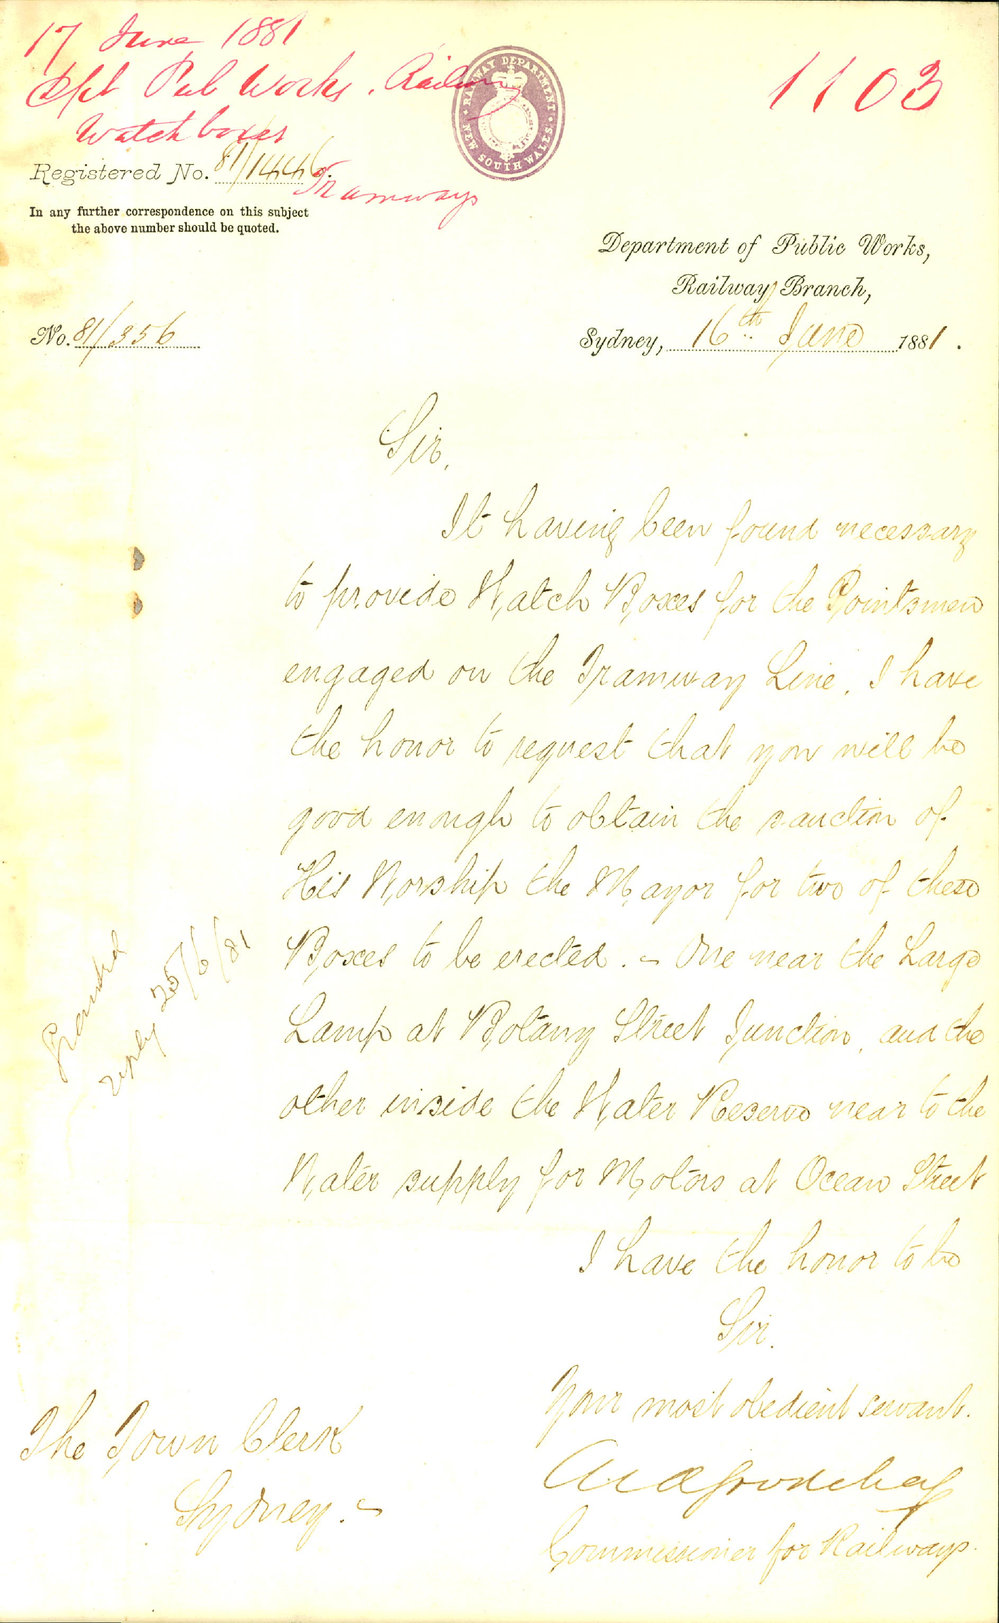 17 June 1881
Dpt Pub Works. Railway
Watchboxes
Tramways
1103
RAILWAY DEPARTMENT
NEW SOUTH WALES
Registered No. 81/1446
In any further correspondence on this subject
the above number should be quoted.
Department of Public Works,
Railway Branch,
No. 81/356
Sydney, 16th June 1881.
Sir,
It having been found necessary
to provide Watch Boxes for the Pointsmen
engaged on the Tramway Line, I have
the honor to request that you will be
good enough to obtain the sanction of
His Worship the Mayor for two of these
Boxes to be erected. - One near the Large
Lamp at Botany Street Junction, and the
other inside the Water Reserve near to the
Water supply for Motors at Ocean Street
Granted
reply 25/6/81
I have the honor to be
Sir.
Your most obedient servant.
Commissioner for Railways.
The Town Clerk
Sydney. -